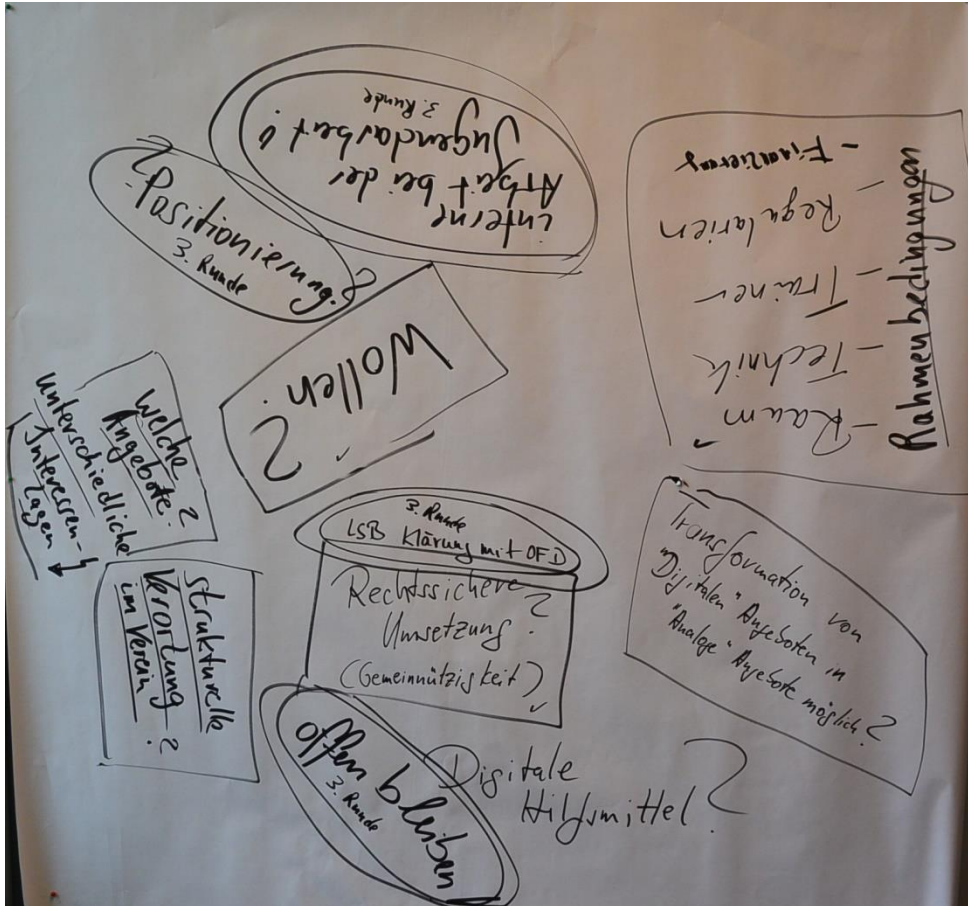 interne
Arbeit bei der
Jugendarbeit!
3. Runde
? Positionierung ?
3. Runde
Wollen?
Rahmenbedingungen
- Raum
- Technik
- Trainer
- Regularien
- Finanzierung
welche
Angebote?
unterschiedliche
Interessen-
lagen
strukturelle
Verortung
im Verein?
3. Runde
LSB Klärung mit OFD
Rechtssichere
Umsetzung?
(Gemeinnützigkeit)
Transformation von
"Digitalen" Angeboten in
"Analoge" Angebote möglich?
offen bleiben
3. Runde
Digitale
Hilfsmittel?